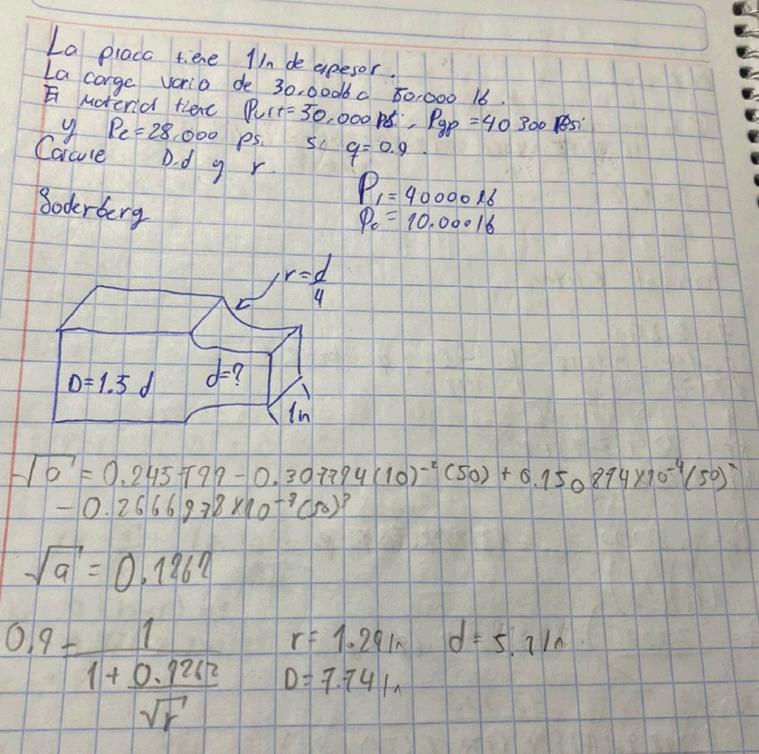 La placa tiene 1in de espesor.
La carga varia de 30.000lb a 50.000 lb.
El material tiene Pult=50,000psi, Pyp=40 300 Psi
y Pe=28.000 psi. si q=0.9.
Calcule D.d y r.
Soderberg
P₁=40000 lb
Pc=10.000 lb
r=d/4
D=1.5 d
d=?
1in
√a = 0.245799-0.307794(10)⁻²(50)+0.150874×10⁻⁴(50)²
-0.2666978×10⁻⁷(50)³
√a = 0.1262
0.9=1/(1+0.1262/√r)
r=1.29in d=5.2in
D=7.74in